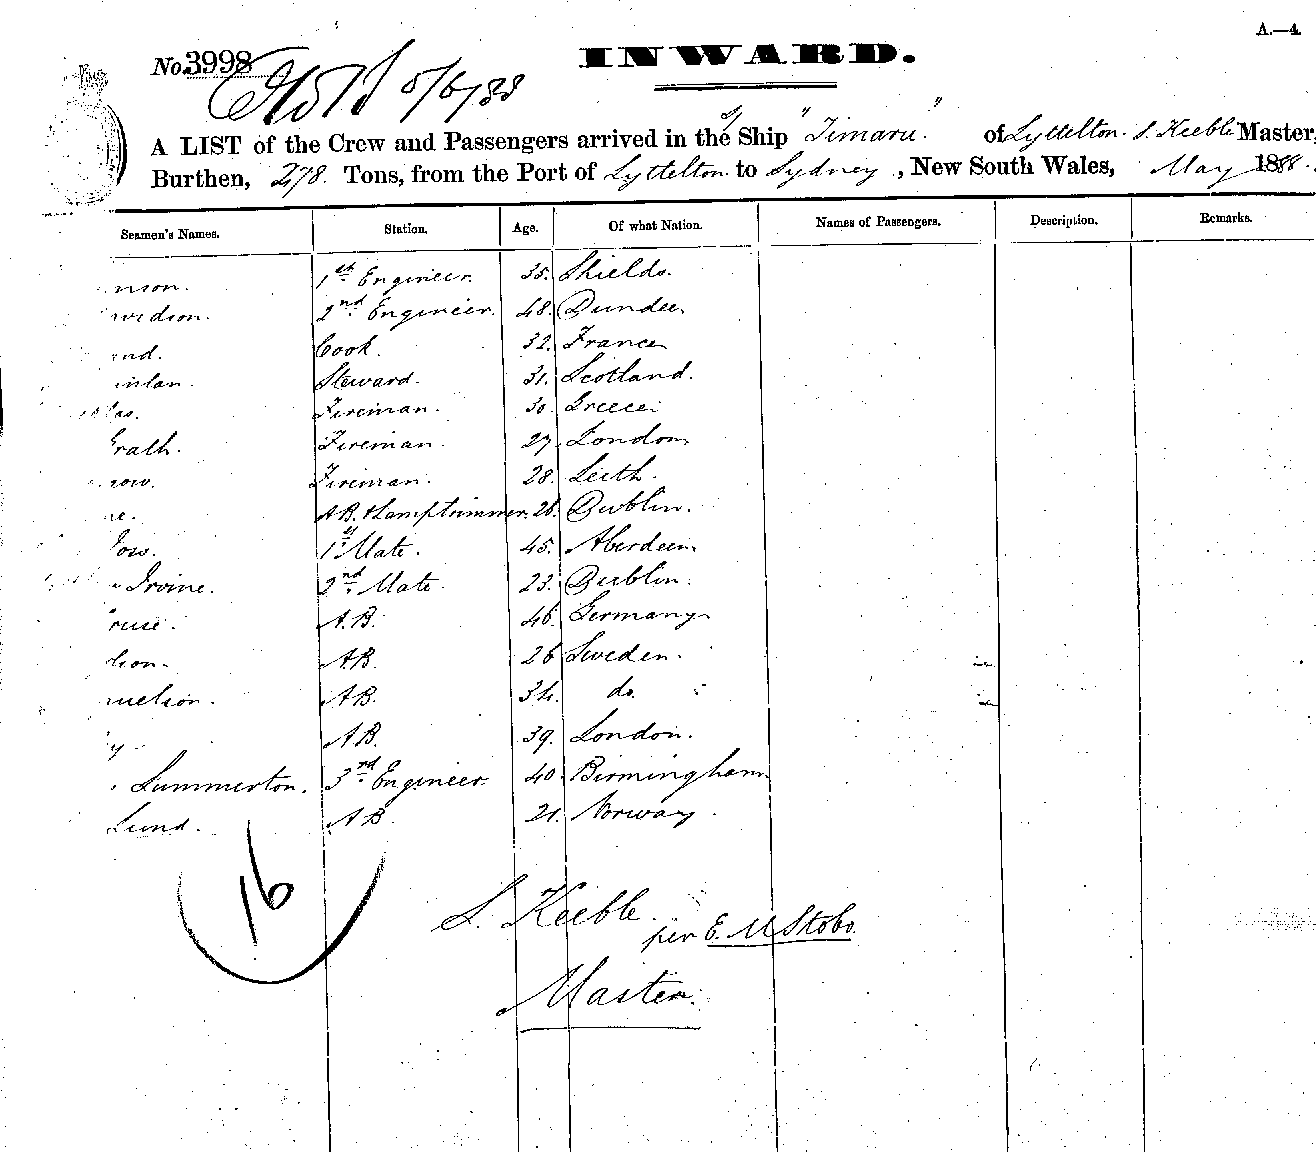 A.—4.
INWARD.
No. 3998
5/6/88
A LIST of the Crew and Passengers arrived in the S/ Ship "Timaru" of Lyttelton. S. Keeble Master,
Burthen, 278. Tons, from the Port of Lyttelton to Sydney, New South Wales, May 1888.
Seamen's Names. Station. Age. Of what Nation. Names of Passengers. Description. Remarks.
nson. 1st Engineer. 35. Shields.
wedson. 2nd Engineer. 48. Dundee
and. Cook. 32. France
inlan. Steward. 31. Scotland.
las. Fireman. 30. Greece.
Grath. Fireman. 27. London
row. Fireman. 28. Leith.
re. AB. & Lamptrimmer. 26. Dublin.
low. 1st Mate. 45. Aberdeen
Irvine. 2nd Mate 23. Dublin.
ruse. A.B. 46. Germany
AB. 26 Sweden.
uelson. AB. 34. do.
y AB. 39. London.
Summerton. 3rd Engineer. 40. Birmingham
Lund. AB 21. Norway
16
S. Keeble.
per E. M Stobo.
Master.